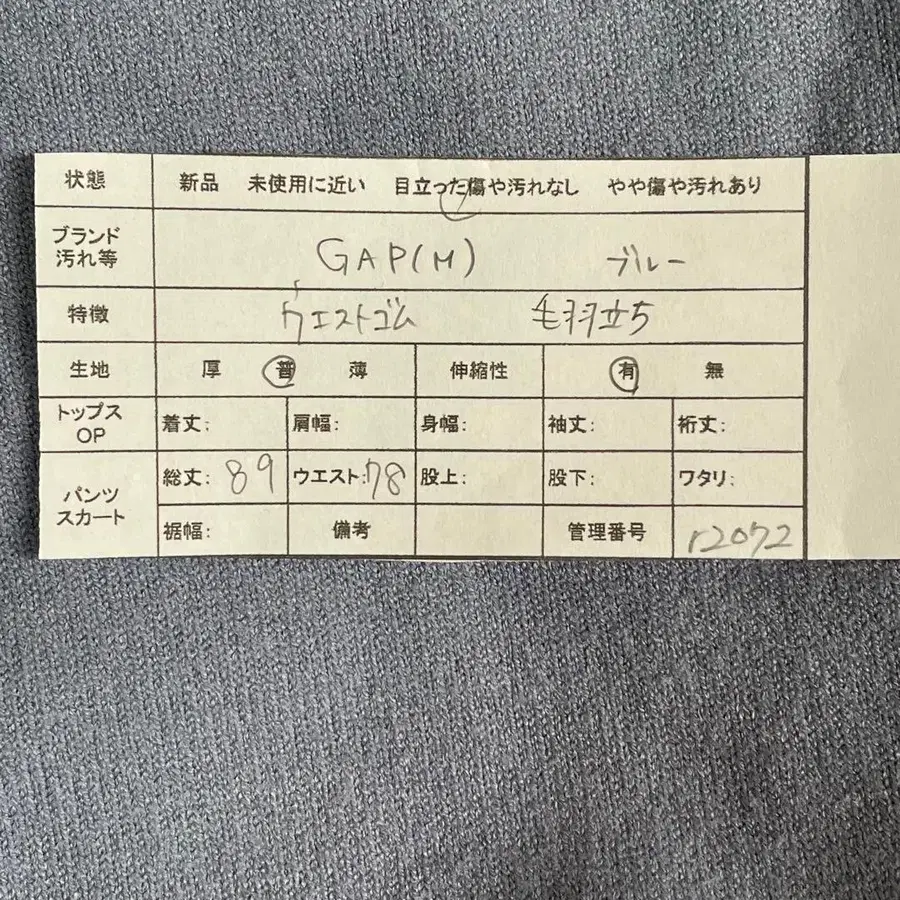 状態 新品 未使用に近い 目立った傷や汚れなし やや傷や汚れあり
ブランド
汚れ等 GAP(M) ブルー
特徴 ウエストゴム 毛羽立ち
生地 厚 普 薄 伸縮性 有 無
トップス
OP 着丈: 肩幅: 身幅: 袖丈: 裄丈:
パンツ
スカート 総丈: 89 ウエスト: 78 股上: 股下: ワタリ:
裾幅: 備考 管理番号 r2072